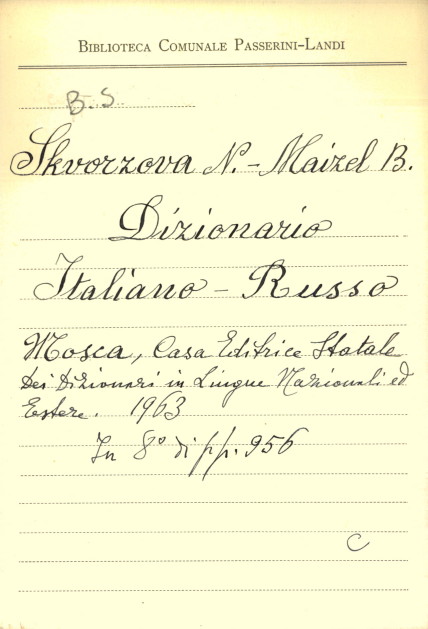 BIBLIOTECA COMUNALE PASSERINI-LANDI
B. S.
Skvorzova N. - Maizel B.
Dizionario
Italiano - Russo
Mosca, Casa Editrice Statale
Dei Dizionari in Lingue Nazionali ed
Estere. 1963
In 8° di pp. 956
C